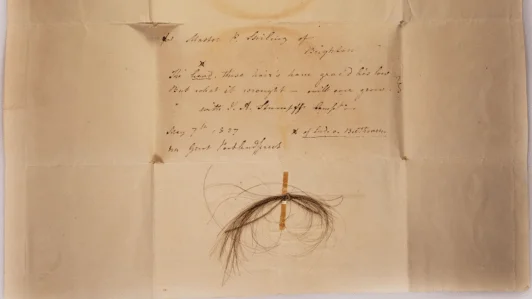 Master of
Brighton
x
The head these hair's have grac'd lies low
But what it wrought – will ever grow
with J. A. Stumpff
May 7th 1827
Great Portland Street
x of Beethoven